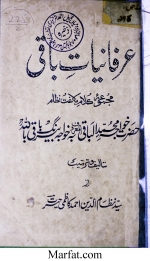 عرفانیات باقی
مجموعہ کلام بلاغت نظام
حضرت خواجہ محمد الباقی
خواجہ بیرنگ باقی باللہ
تالیف و ترتیب
از
سید نظام الدین احمد کاظمی
Marfat.com